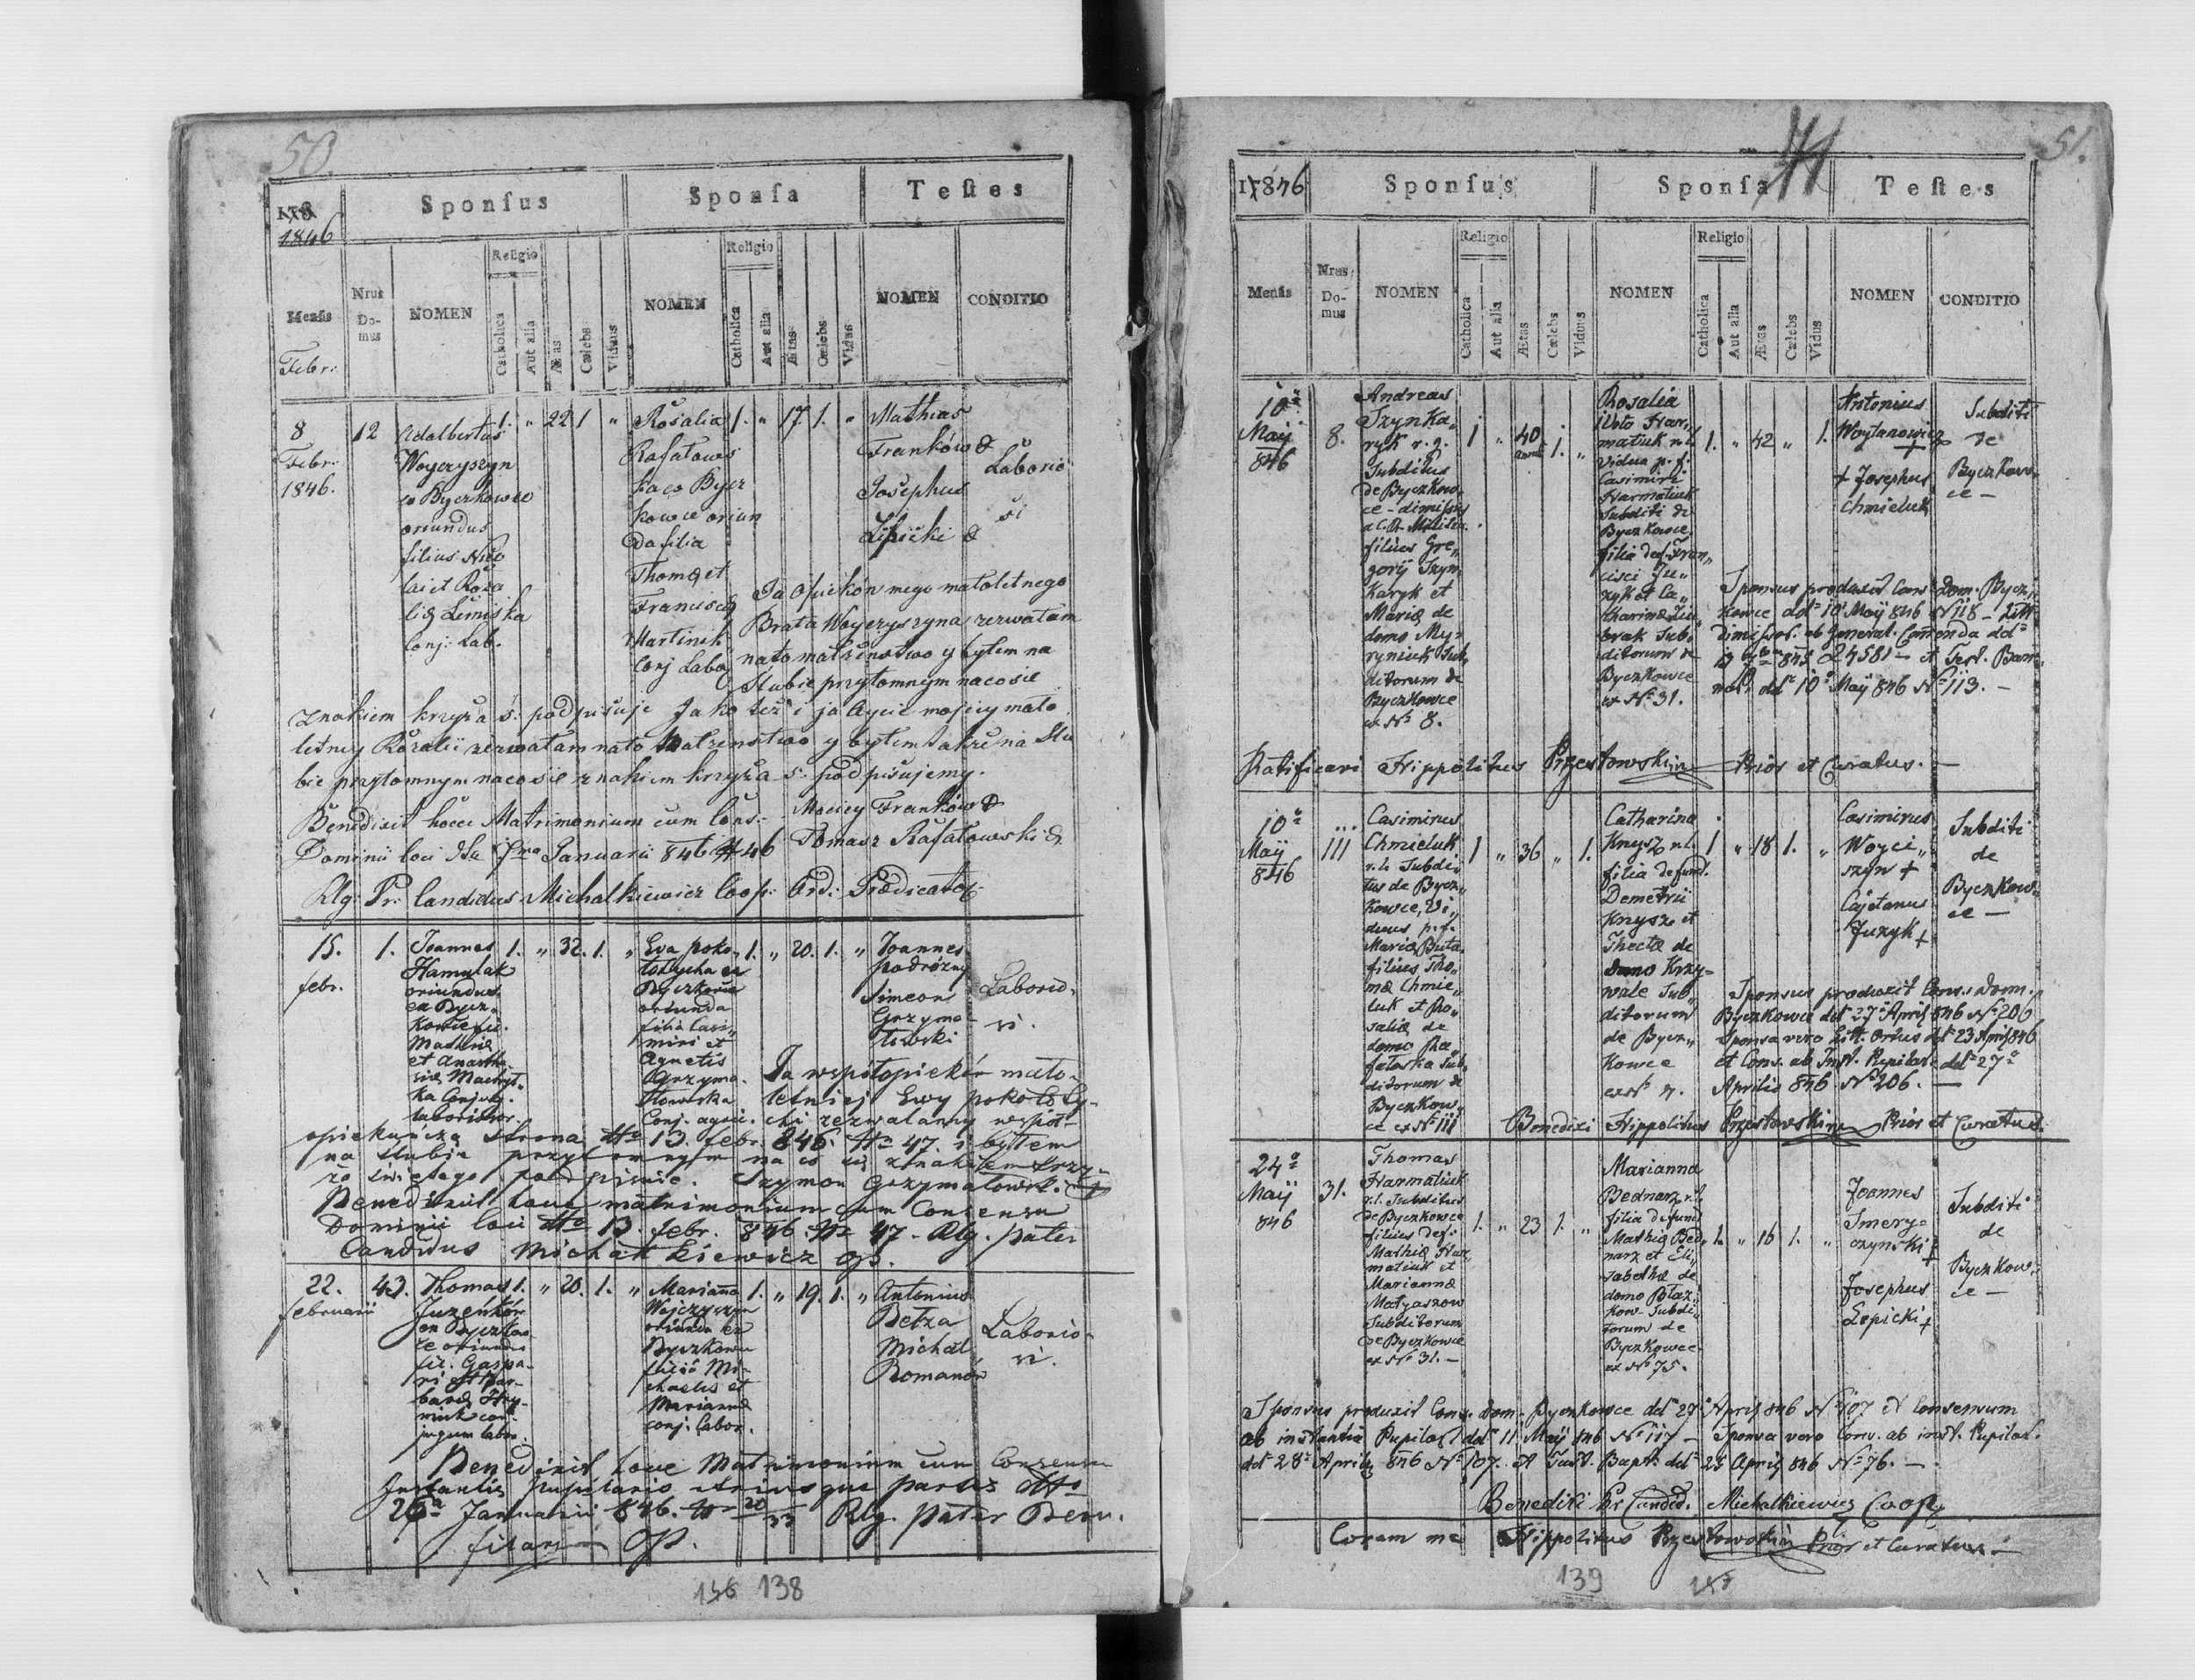 50.
178
1846
Sponſus
Sponſa
Teſtes
Religio
Religio
Menſis
Nrus
Do-
mus
NOMEN
Catholica
Aut alia
Ætas
Cælebs
Viduus
NOMEN
Catholica
Aut alia
Ætas
Cælebs
Vidua
NOMEN
CONDITIO
Febr:
8
Febr:
1846.
12
Adalbertus
Woyczyszyn
ex Byczkowce
oriundus
filius Nico
lai et Rosa
liæ Limiska
Conj: Lab.
1. " 22 1 "
Rosalia
Rafatows
ka ex Bycz
kowce oriun
da filia
Thomæ et
Franciscæ
Martinik
Conj Labo
1. " 17 1. "
Mathias
Franków
Josephus
Lipicki
Laborio
si
Ja Opiekón mego małoletnego
Brata Woyczyszyna zezwałam
na to małżeństwo y byłem na
Slubie przytomnym na co sie
znakiem krzyża S: podpisuje Jako też i ja Oyciec mojey mało
letney Rozalii zezwałam na to Małżenstwo y byłem także na Slu
bie przytomnym na co sie znakiem krzyża S: podpisujemy.
Maciey Franków
Benedixit hocce Matrimonium cum Cons:
Dominii loci dto 7ma Januarii 846 N 46 Tomasz Rafatowski
Rlg: Pr: Candidus Michalkiewicz Coop: Ord: Prædicato:
15.
febr.
1.
Joannes
Hamulak
oriundus
ex Bycz-
kowce fil.
Mathiæ
et Anasta
siæ Machyt-
ka Conjug.
laborioso.
1. " 32. 1. "
Eva poko-
tołycha ex
Byczkowce
oriunda
filia Casi-
miri et
Agnetis
Grzyma-
łowska
Conj. agric.
1. " 20. 1. "
Joannes
podróżny
Simeon
Grzyma-
łowski
Laborio-
si.
Ja wspołopiekón mało-
letniej Ewy pokołoły-
chi zezwalamy wspoł-
opiekuńczą strona dto 13 febr. 846. No 47 i byłem
na slubie przytomnym na co się znakiem krzy-
ża świętego podpisuje. Szymon Grzymałowski
Benedixit houc matrimonium cum Consensu
Dominii loci dto 13. febr. 846. No 47 - Rlg. pater
Candidus Michałkiewicz Op.
22.
februarii
43.
Thomas
Juzenków
ex Byczkow
ce oriundus
fil. Gaspa-
ri et Bar-
baræ Hry-
niuk con-
jugum labor.
1. " 20. 1. "
Marianna
Wojczyszyn
oriunda ex
Byczkowce
filia Mi-
chaelis et
Mariannæ
conj. labor.
1. " 19. 1. "
Antonius
Bełza
Michał
Romanów
Laborio-
si.
Benedixit houc Matrimonium cum Consensu
Instantiæ pupilaris utriusque partis dto
26a Januarii 846. No 20 33 Rlg. pater Bern.
Op.
156 138
51.
17846
Sponſus
Sponſa
Teſtes
Religio
Religio
Menſis
Nrus
Do-
mus
NOMEN
Catholica
Aut alia
Ætas
Cælebs
Viduus
NOMEN
Catholica
Aut alia
Ætas
Cælebs
Vidua
NOMEN
CONDITIO
10a
Maÿ
846
8.
Andreas
Szynka„
ryk r. g.
Subditus
de Byczkow„
ce - dimissus
a C. R. Militia.
filius Gre„
gorÿ Szyn„
karyk et
Mariæ de
domo My„
ryniuk Sub„
ditorum de
Byczkowce
ex No 8.
1 " 40 annor 1. "
Rosalia
1voto Har„
matiuk r. l.
Vidua p. f.
Casimiri
Harmatiuk
Subditi de
Byczkowce
filia def. Fran„
cisci Ju„
zyk et Ca„
tharinæ
Sub„
ditorum de
Byczkowce
ex No 31.
1. " 42 " 1.
Antonius
Woytanowicz
+
+ Josephus
Chmieluk
Subditi
de
Byczkow„
ce -
Sponsus produxit Cons. Dom. Bycz„
kowce ddto 10a Maÿ 846 No 118 - Litt.
dimissor. ab General. Comenda ddto
845 4581 - et Test. Bann„
ddto 10a Maÿ 846 No 113. -
Ratificavi Hippolitus Przestowski Prior et Curatus. -
10a
Maÿ
846
...
111
Casimirus
Chmieluk
r. l. Subdi„
tus de Bycz„
kowce, Vi„
duus p. f.
Mariæ Buta
filius Tho„
mæ Chmie„
luk et Ro„
saliæ de
domo Ra„
fałoska Sub„
ditorum de
Byczkow„
ce ex No 111
1 " 36 " 1.
Catharina
Knysz r. l.
filia defunct.
Demetrii
Knysz et
Theclæ de
domo Krzy„
wale Sub„
ditorum
de Bycz„
kowce
ex No 7.
1 " 18 1. "
Casimirus
Woyci„
szyn +
Cajetanus
Juzyk +
Subditi
de
Byczkow„
ce -
Sponsus produxit Cons. Dom.
Byczkowce ddto 27a April 846 No 206
Sponsa vero Litt. Ortus ddto 23 April 846
et Cons. ab Inst. Pupilar. ddto 27a
Aprilis 846 No 206. -
Benedixi Hippolitus Przestowski Prior et Curatus.
24a
Maÿ
846
31.
Thomas
Harmatiuk
r. l. Subditus
de Byczkowce
filius def.
Mathiæ Har„
matiuk et
Mariannæ
Matyaszow
Subditorum
de Byczkowce
ex No 31. -
1. " 23 1. "
Marianna
Bednarz r. l.
filia defunct
Mathiæ Bed„
narz et Eli„
sabethæ de
domo Błaz„
kow Subdi„
torum de
Byczkowce
ex No 75.
1. " 16 1. "
Joannes
Smery„
czynski +
Josephus
Lepicki +
Subditi
de
Byczkow„
ce -
Sponsus produxit Cons. Dom. Byczkowce ddto 27a April 846 No 107 et Consensum
ab instantia Pupilari ddto 11 Maÿ 846 No 117 - Sponsa vero Cons. ab inst. Pupilar.
ddto 28a Aprilis 846 No 107. et Test. Bapt. ddto 25 April 846 No 76. -
Benedixi Pr Candid. Michalkiewicz Coop.
Coram me Hippolitus Przestowski Prior et Curatus. -
139 157